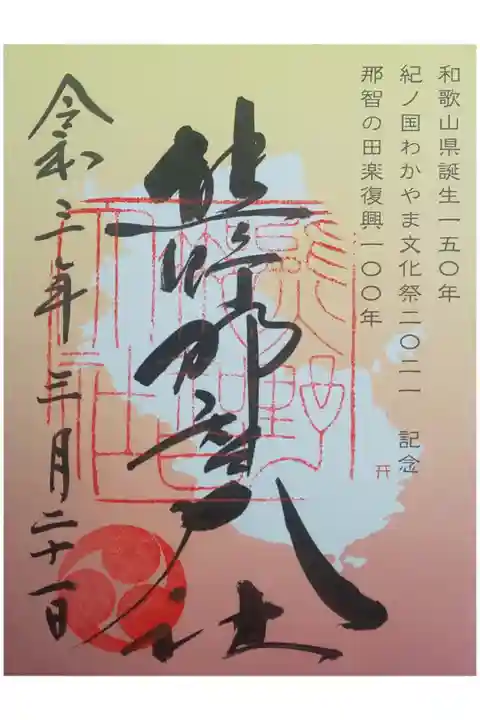 和歌山県誕生一五〇年
紀ノ国わかやま文化祭二〇二一 記念
那智の田楽復興一〇〇年
熊野那智大社
令和三年三月二十一日